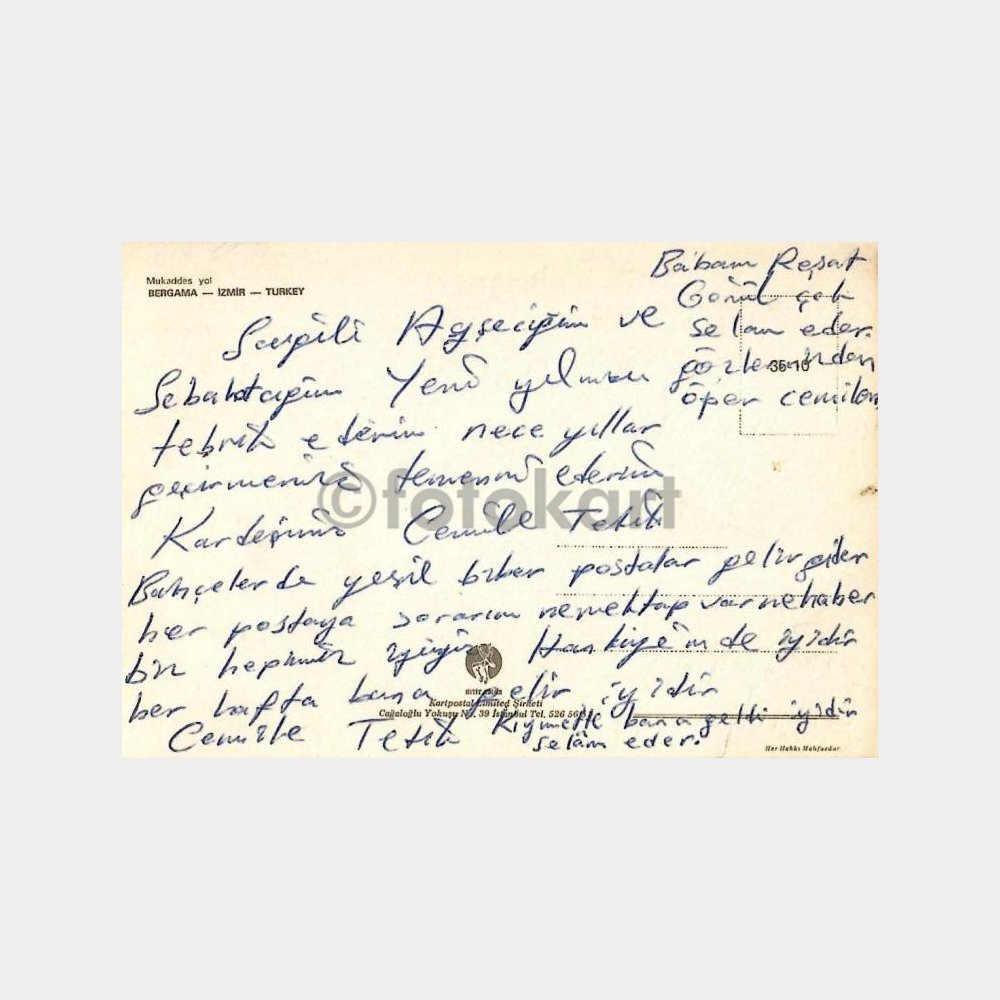 Mukaddes yol
BERGAMA — İZMİR — TURKEY
Babam Reşat
Gönül çok
selam eder.
gözlerinden
öper cemilem
35-10
Sevgili Ayşeciğim ve
Sebahatcığım Yeni yılınızı
tebrik ederim nece yıllar
geçirmenizi temenni ederim
Kardeşiniz Cemile Tetik
Bahçelerde yeşil biber postalar gelir gider
her postaya sorarım nemektap var nehaber
biz hepimiz iyiyiz de iyidir
her hafta bana gelir iyidir
Cemile Tetik Kıymetli bana geldi iyidir
selâm eder.
Kartpostal Limited Şirketi
Cağaloğlu Yokuşu No. 39 İstanbul Tel. 526 56
Her Hakkı Mahfuzdur
©fotokart